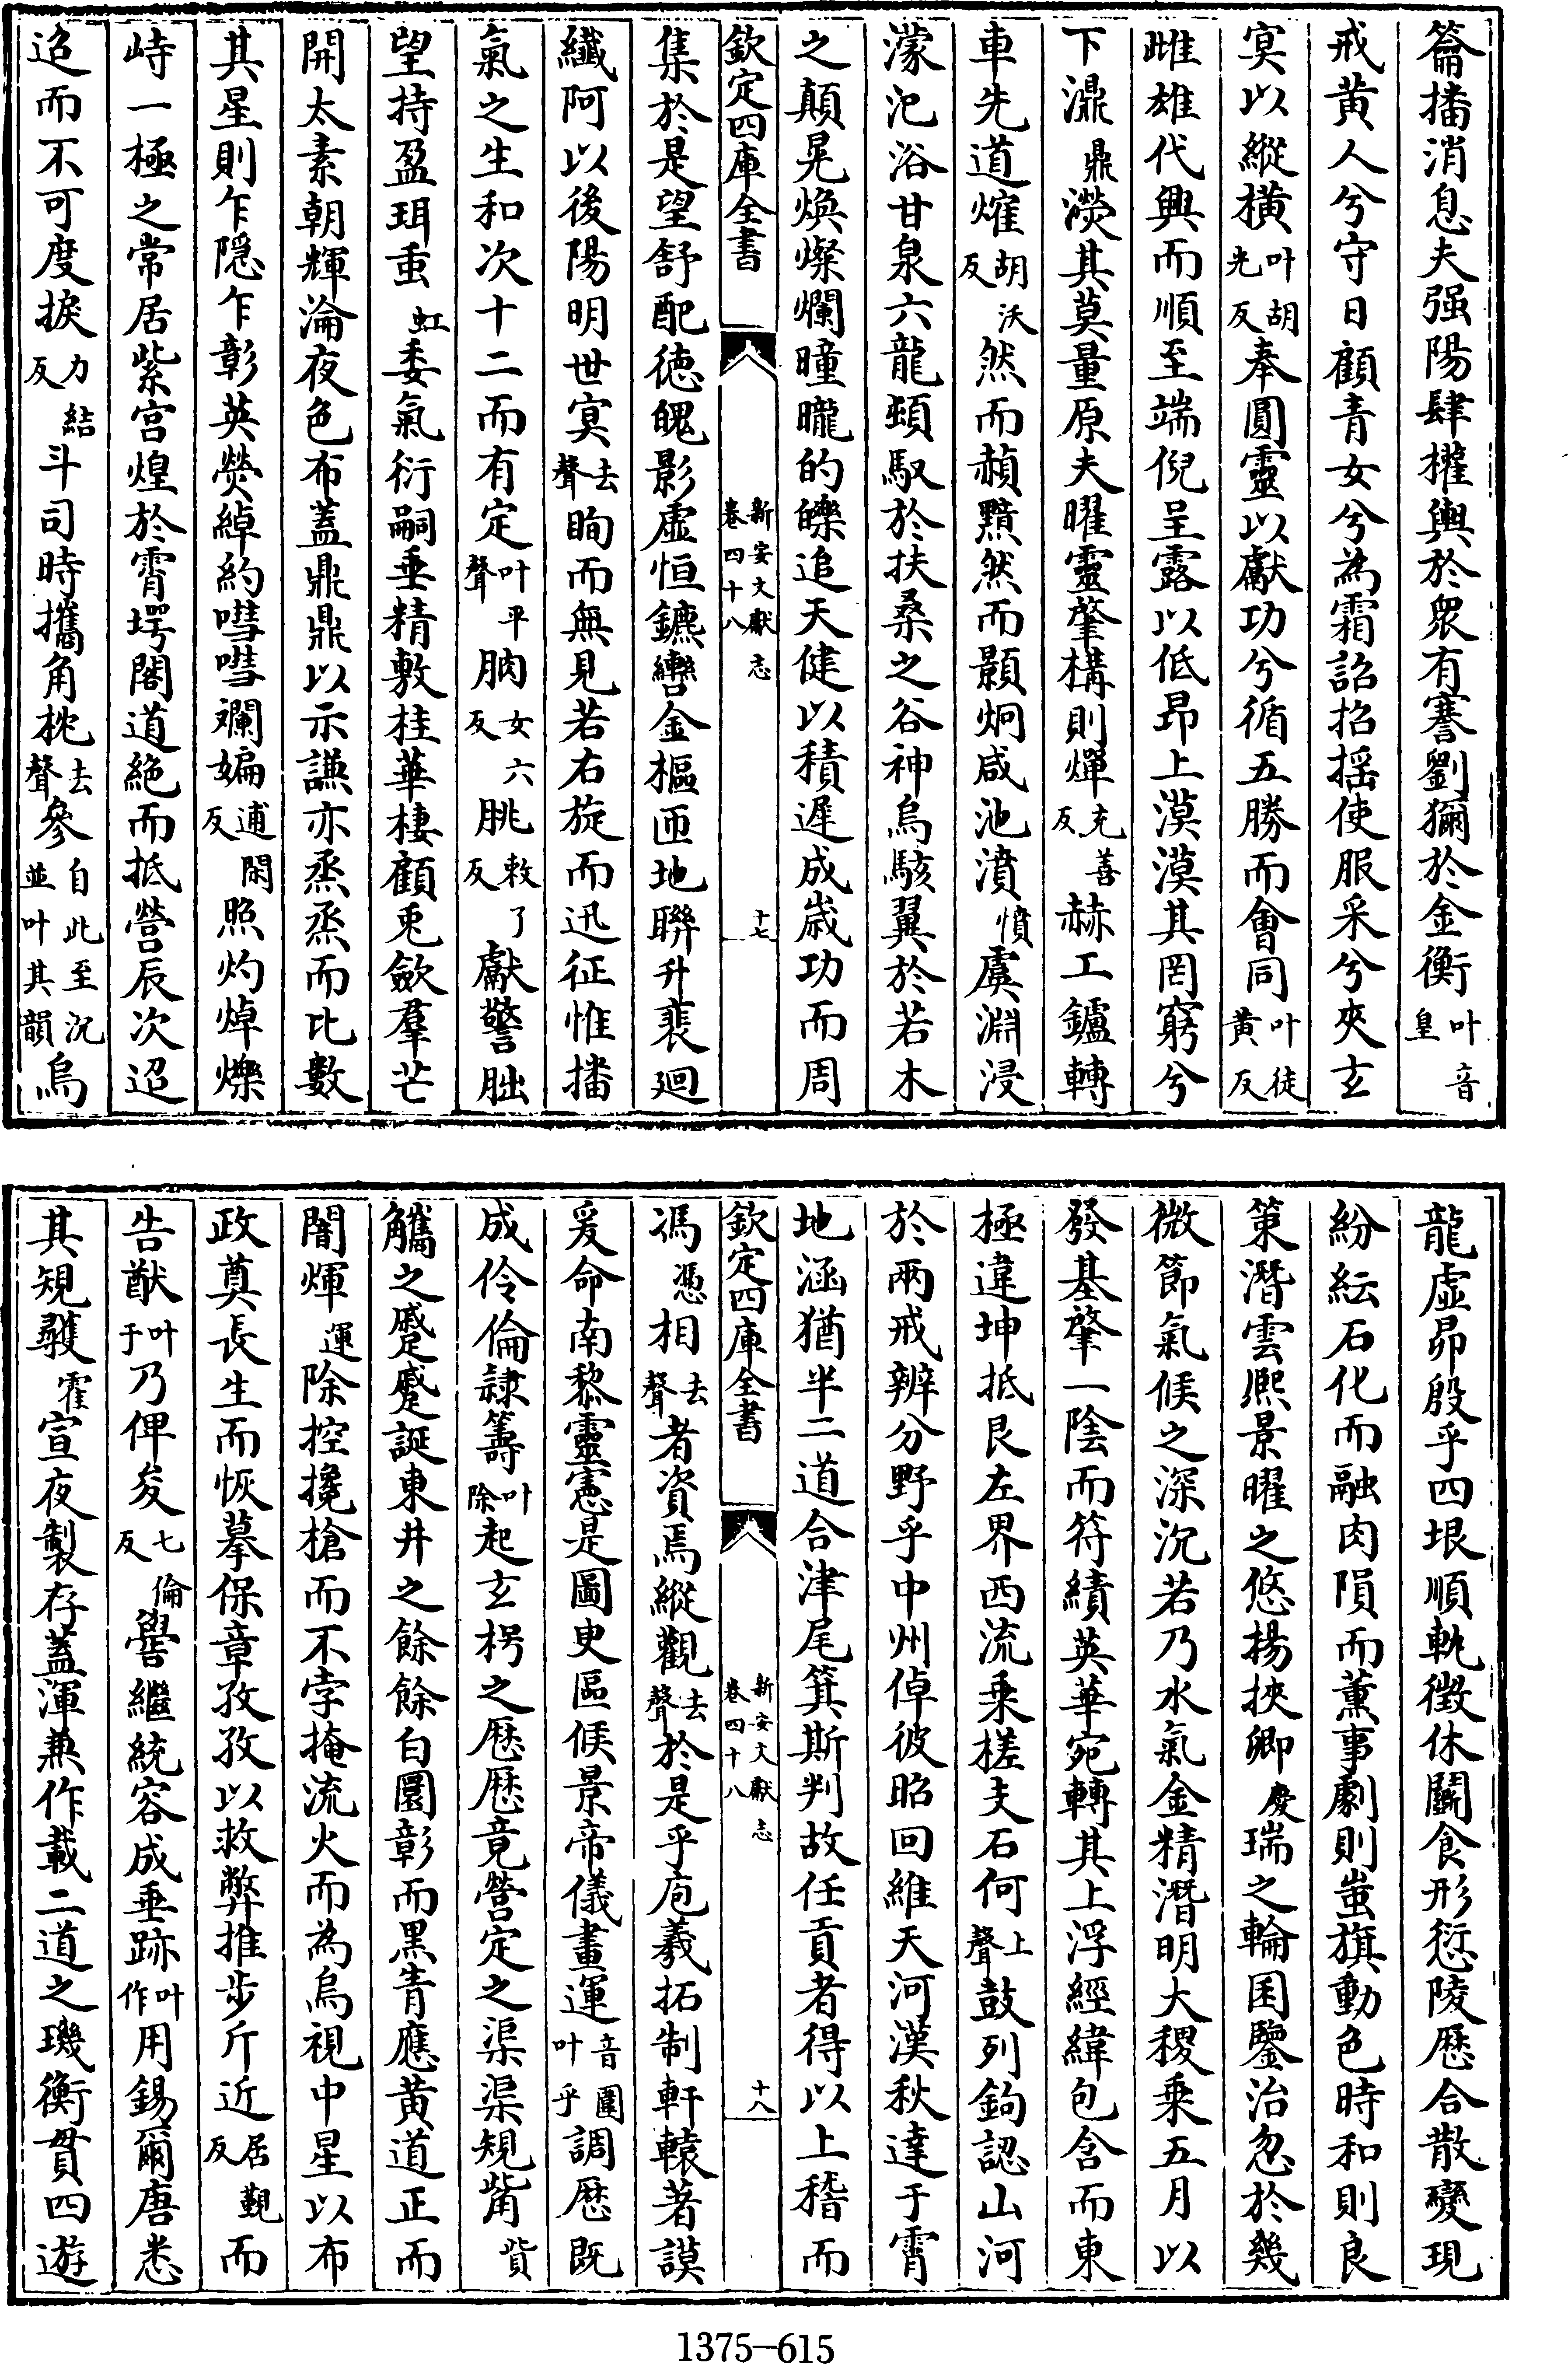 籥播消息夫强陽肆權輿於衆有謇劉獮於金衡叶音皇
戒黄人兮守日顧青女兮為霜詔招摇使服采兮夾玄
冥以縱横叶胡光反奉圓靈以獻功兮循五勝而會同叶徒黄反
雌雄代興而順至端倪呈露以低昂上漠漠其罔窮兮
下濎鼎濙其莫量原夫曜靈肇構則燀充善反赫工鑪轉
車先道㷶胡沃反然而赬黯然而顥炯咸池濆憤虞淵浸
濛汜浴甘泉六龍頓馭於扶桑之谷神烏駭翼於若木
之顛晃煥燦爛曈曨的皪追天健以積遲成歲功而周
欽定四庫全書
新安文獻志
卷四十八
十七
集於是望舒配徳魄影虚恒鑣轡金樞匝地聯升裴廻
纖阿以後陽明世冥去聲眴而無見若右旋而迅征惟播
氣之生和次十二而有定叶平聲朒女六反朓敕了反獻警朏
望持盈珥䖝虹委氣衍嗣垂精敷桂華棲顧兎歛羣芒
開太素朝輝淪夜色布蓋鼎鼎以示謙亦烝烝而比數
其星則乍隱乍彰英熒綽約嘒嘒斕斒逋閑反照灼焯爍
峙一極之常居紫宫煌於霄堮閣道絶而抵營辰次迢
迢而不可度捩力結反斗司時攜角枕去聲參自此至沉並叶其韻烏
龍虚昴殷乎四垠順軌徵休鬭食形愆陵歴合散變現
紛紜石化而融肉隕而薫事劇則蚩旗動色時和則良
策潛雲熙景曜之悠揚挾卿慶瑞之輪囷鑒治忽於幾
微節氣候之深沉若乃水氣金精潛明大稷乘五月以
發基肇一陰而符績英華宛轉其上浮經緯包含而東
極違坤抵艮左界西流乘槎支石何上聲鼓列鉤認山河
於兩戒辨分野乎中州倬彼昭回維天河漢秋達于霄
地涵猶半二道合津尾箕斯判故任貢者得以上稽而
欽定四庫全書
新安文獻志
卷四十八
十八
馮憑相去聲者資焉縱觀去聲於是乎庖羲拓制軒轅著謨
爰命南黎靈憲是圖史區候景帝儀畫運音圍叶乎調歴既
成伶倫隷籌叶除起玄枵之歴歴竟營定之渠渠規觜貲
觿之蹙蹙誕東井之餘餘白圜彰而黒青應黄道正而
闇煇運除控攙槍而不孛掩流火而為烏視中星以布
政奠長生而恢摹保章孜孜以救弊推步斤近居覲反而
告猷叶于乃俾夋七倫反嚳繼統容成垂跡叶作用錫爾唐悉
其規彠霍宣夜製存蓋渾兼作載二道之璣衡貫四遊
1375-615